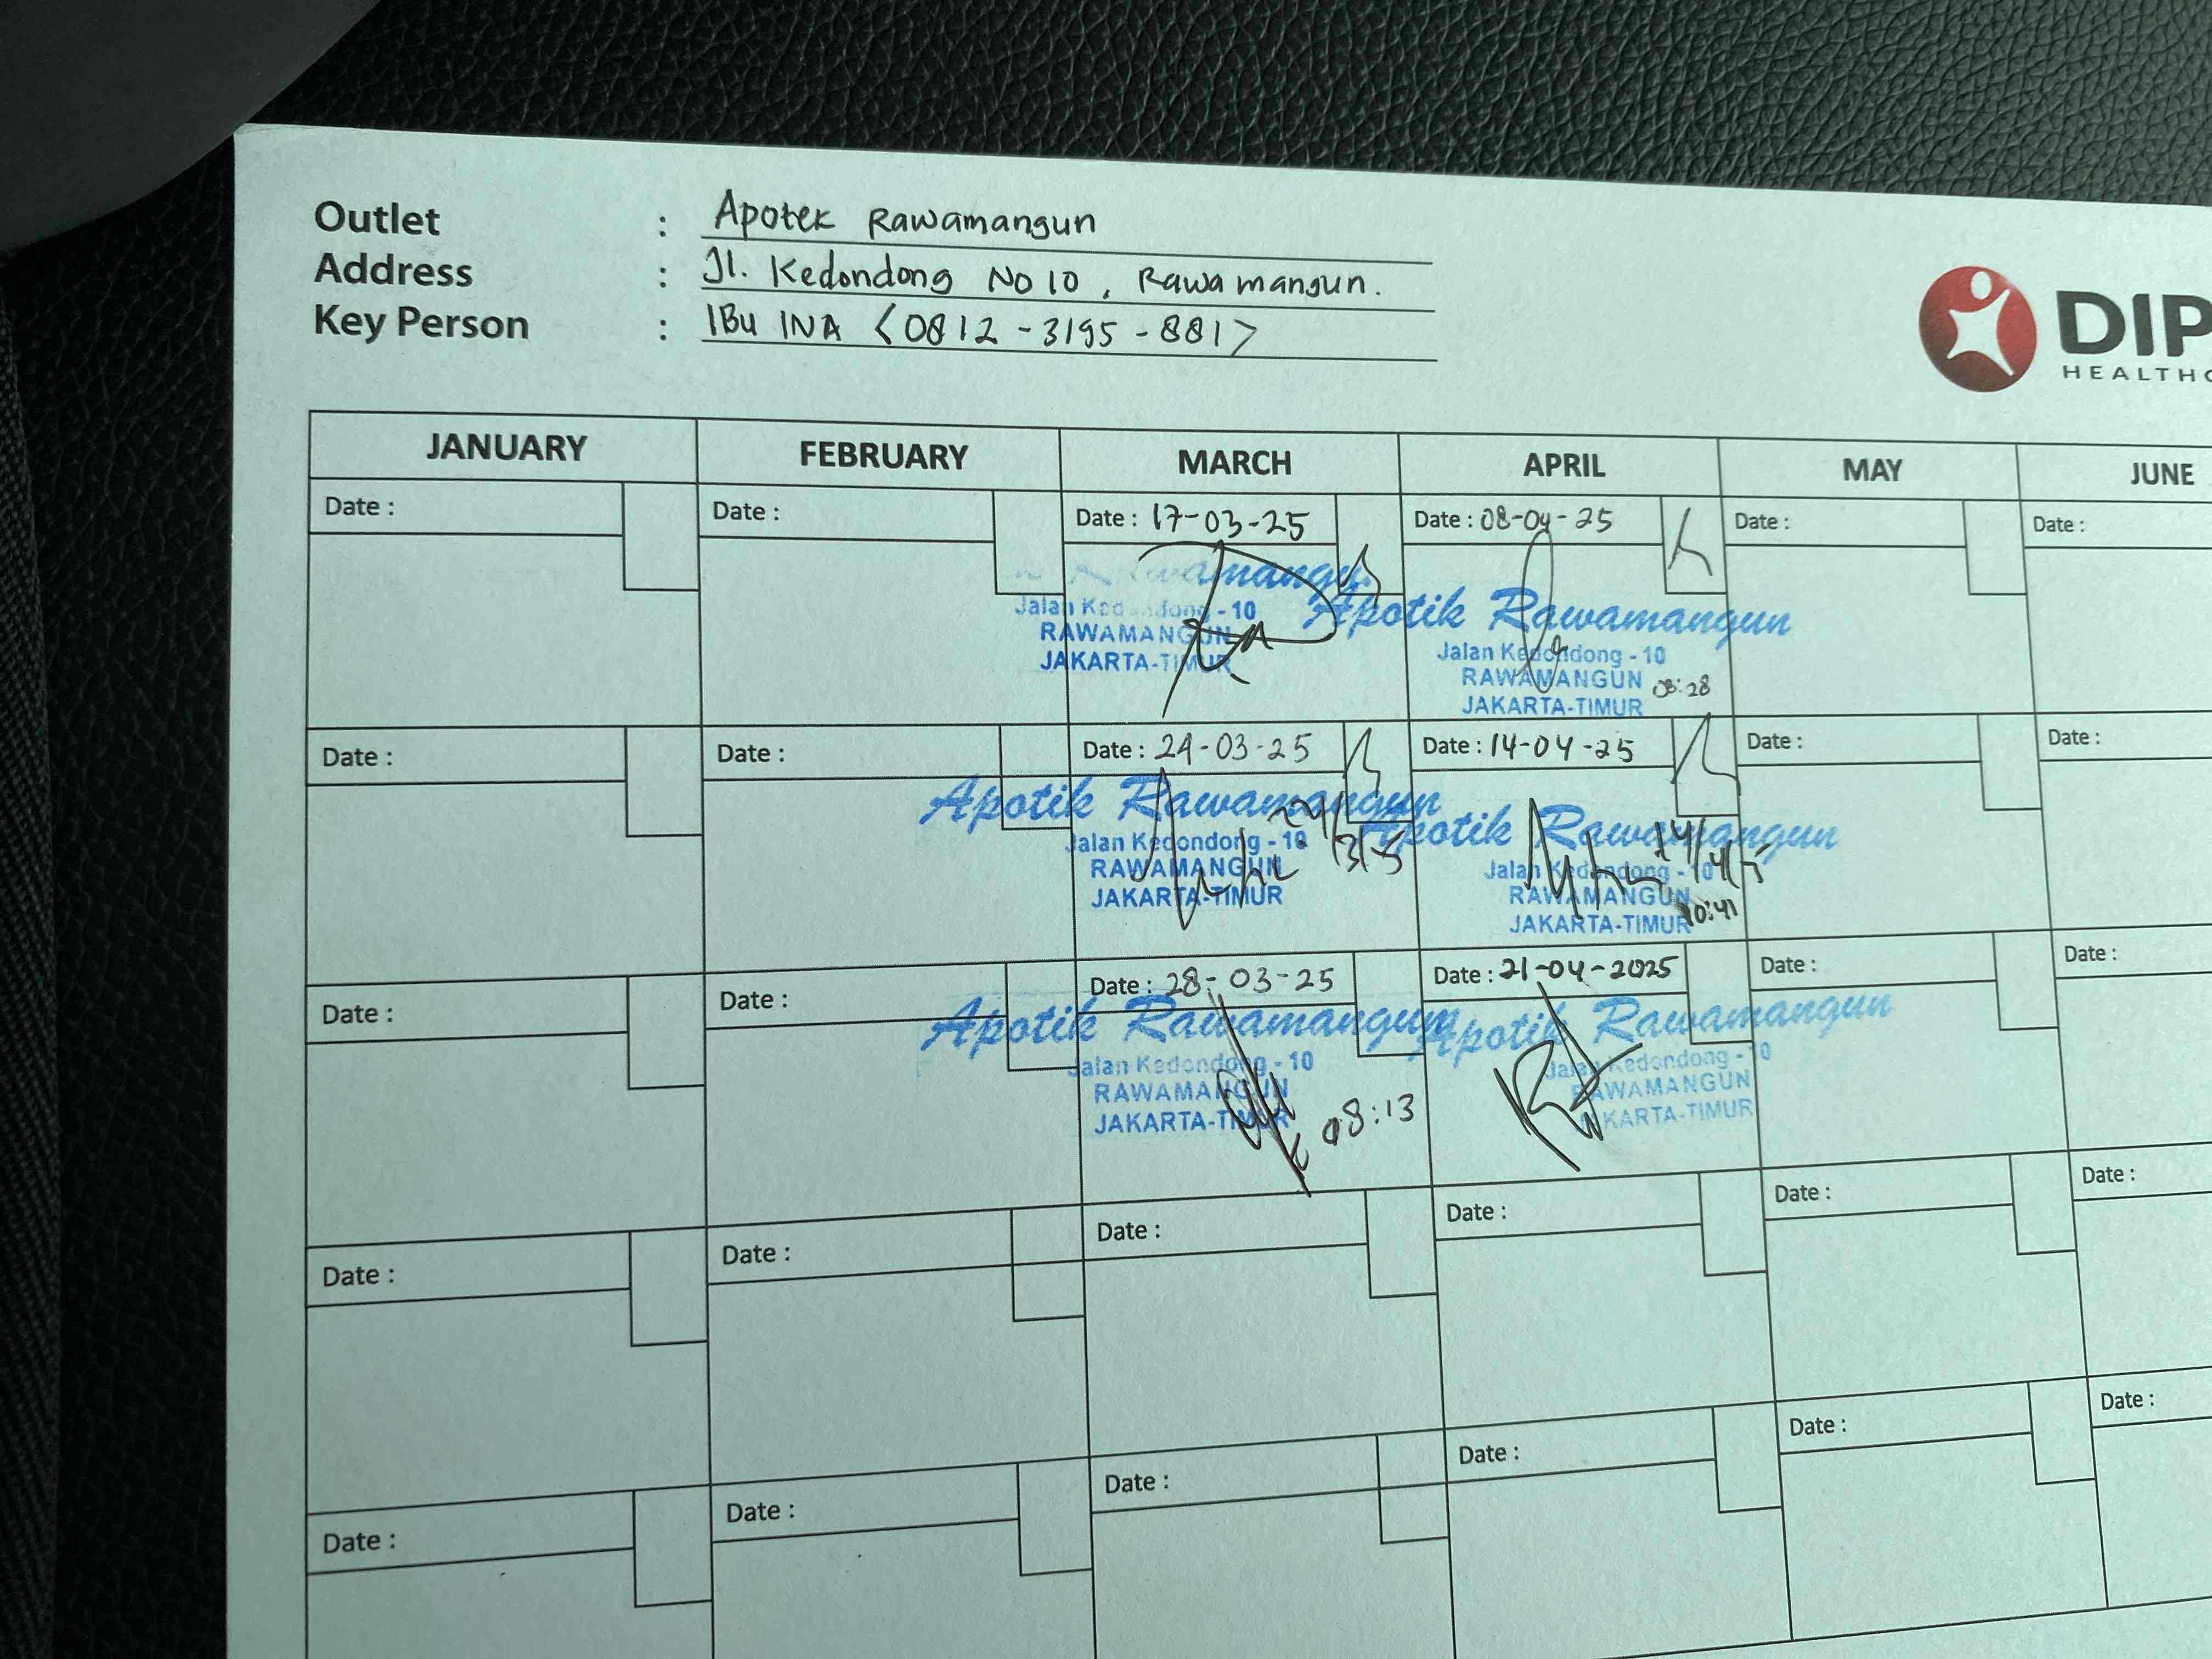 Outlet : Apotek Rawamangun
Address : Jl. Kedondong No 10, Rawamangun.
Key Person : IBu INA <0812-3195-881>
DIP
HEALTHC
JANUARY FEBRUARY MARCH APRIL MAY JUNE
Date : Date : Date : 17-03-25 Date : 08-04-25 Date : Date :
Rawamangun
Jalan Kedondong - 10
RAWAMANGUN
JAKARTA-TIMUR
Apotik Rawamangun
Jalan Kedondong - 10
RAWAMANGUN
JAKARTA-TIMUR
08:28
Date : Date : Date : 24-03-25 Date : 14-04-25 Date : Date :
Apotik Rawamangun
Jalan Kedondong - 10
RAWAMANGUN
JAKARTA-TIMUR
24/3/5
Apotik Rawamangun
Jalan Kedondong - 10
RAWAMANGUN
JAKARTA-TIMUR
14/4/5
10:41
Date : Date : Date : 28-03-25 Date : 21-04-2025 Date : Date :
Apotik Rawamangun
Jalan Kedondong - 10
RAWAMANGUN
JAKARTA-TIMUR
08:13
Apotik Rawamangun
Jalan Kedondong - 10
RAWAMANGUN
JAKARTA-TIMUR
Date : Date : Date : Date : Date : Date :
Date : Date : Date : Date : Date : Date :